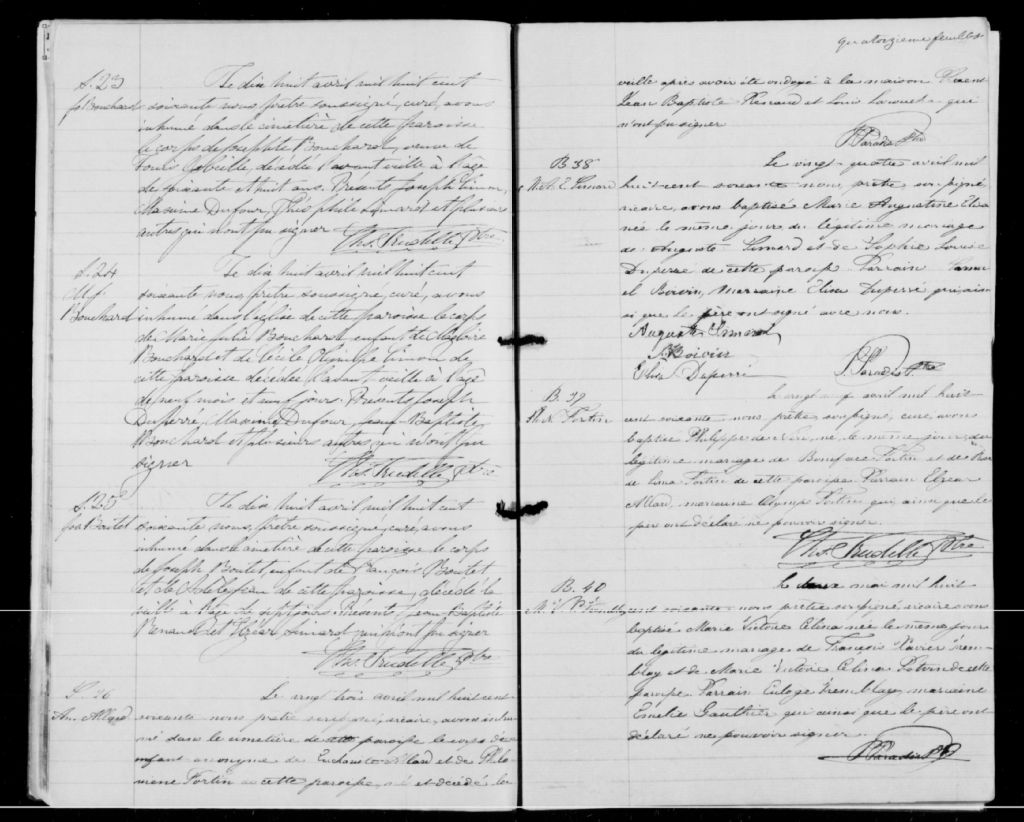 S. 23
Bouchard
Le dix huit avril mil huit cent
soixante nous, prêtre soussigné, curé, avons
inhumé dans le cimetière de cette paroisse
le corps de Josephte Bouchard, veuve de
Louis décédée l'avant veille à l'âge
de soixante et huit ans. Présents Joseph Simon,
Maxime Dufour, Théophile Simard et plusieurs
autres qui n'ont pu signer
Ths. Trudelle Ptre
S. 24
M. J.
Bouchard
Le dix huit avril mil huit cent
soixante nous, prêtre soussigné, curé, avons
inhumé dans l'église de cette paroisse le corps
de Marie Julie Bouchard, enfant de Magloire
Bouchard et de Cécile Olympe Simon de
cette paroisse décédée l'avant veille à l'âge
de neuf mois et neuf jours. Présents Joseph
Duperré, Maxime Dufour, Jean Baptiste
Bouchard et plusieurs autres qui n'ont pu
signer
Ths. Trudelle Ptre
S. 25
Jos. Boutet
Le dix huit avril mil huit cent
soixante nous, prêtre soussigné, curé, avons
inhumé dans le cimetière de cette paroisse le corps
de Joseph Boutet, enfant de François Boutet
et de de cette paroisse, décédé la
veille à l'âge de sept jours. Présents Jean Baptiste
Renaud et Elzéar Simard qui n'ont pu signer
Ths. Trudelle Ptre
S. 26
An. Allard
Le vingt trois avril mil huit cent
soixante nous prêtre soussigné, vicaire, avons inhu-
mé dans le cimetière de cette paroisse le corps de
enfant anonyme de Eucharste Allard et de Philo
mène Fortin de cette paroisse, né et décédé la
quatorzieme feuillet
veille après avoir été ondoyé à la maison Présents
Jean Baptiste Renaud et Louis qui
n'ont pu signer
P. Paradis Ptre
B 38
M. A. E. Simard
Le vingt quatre avril mil
huit cent soixante nous, prêtre soussigné
vicaire, avons baptisé Marie Augustine Elisa
née le même jour du légitime mariage
de Auguste Simard et de Sophie Louise
Duperré de cette paroisse Parrain Samu
el Boivin, Marraine Elisa Duperré qui ain
si que le père ont signé avec nous.
Auguste Simard
Boivin
Elisa Duperré
P. Paradis Ptre
B. 39
Ph. N. Fortin
Le vingt neuf avril mil huit
cent soixante nous, prêtre soussigné, curé, avons
baptisé Philippe de Néri, né le même jour, du
légitime mariage de Boniface Fortin et de Rose
de Lima Fortin de cette paroisse Parrain Elzear
Allard, marraine Olympe Fortin qui, ainsi que le
père ont déclaré ne pouvoir signer.
Ths. Trudelle Ptre
B. 40
M. V. Tremblay
Le deux mai mil huit
cent soixante nous prêtre soussigné vicaire avons
baptisé Marie Victoire Elina née le même jour
du légitime mariage de François Xavier Trem-
blay et de Marie Victoire Elina Potvin de cette
paroisse Parrain Euloge Tremblay, marraine
Emelie Gauthier qui ainsi que le père ont
déclaré ne pouvoir signer.
P. Paradis Ptre